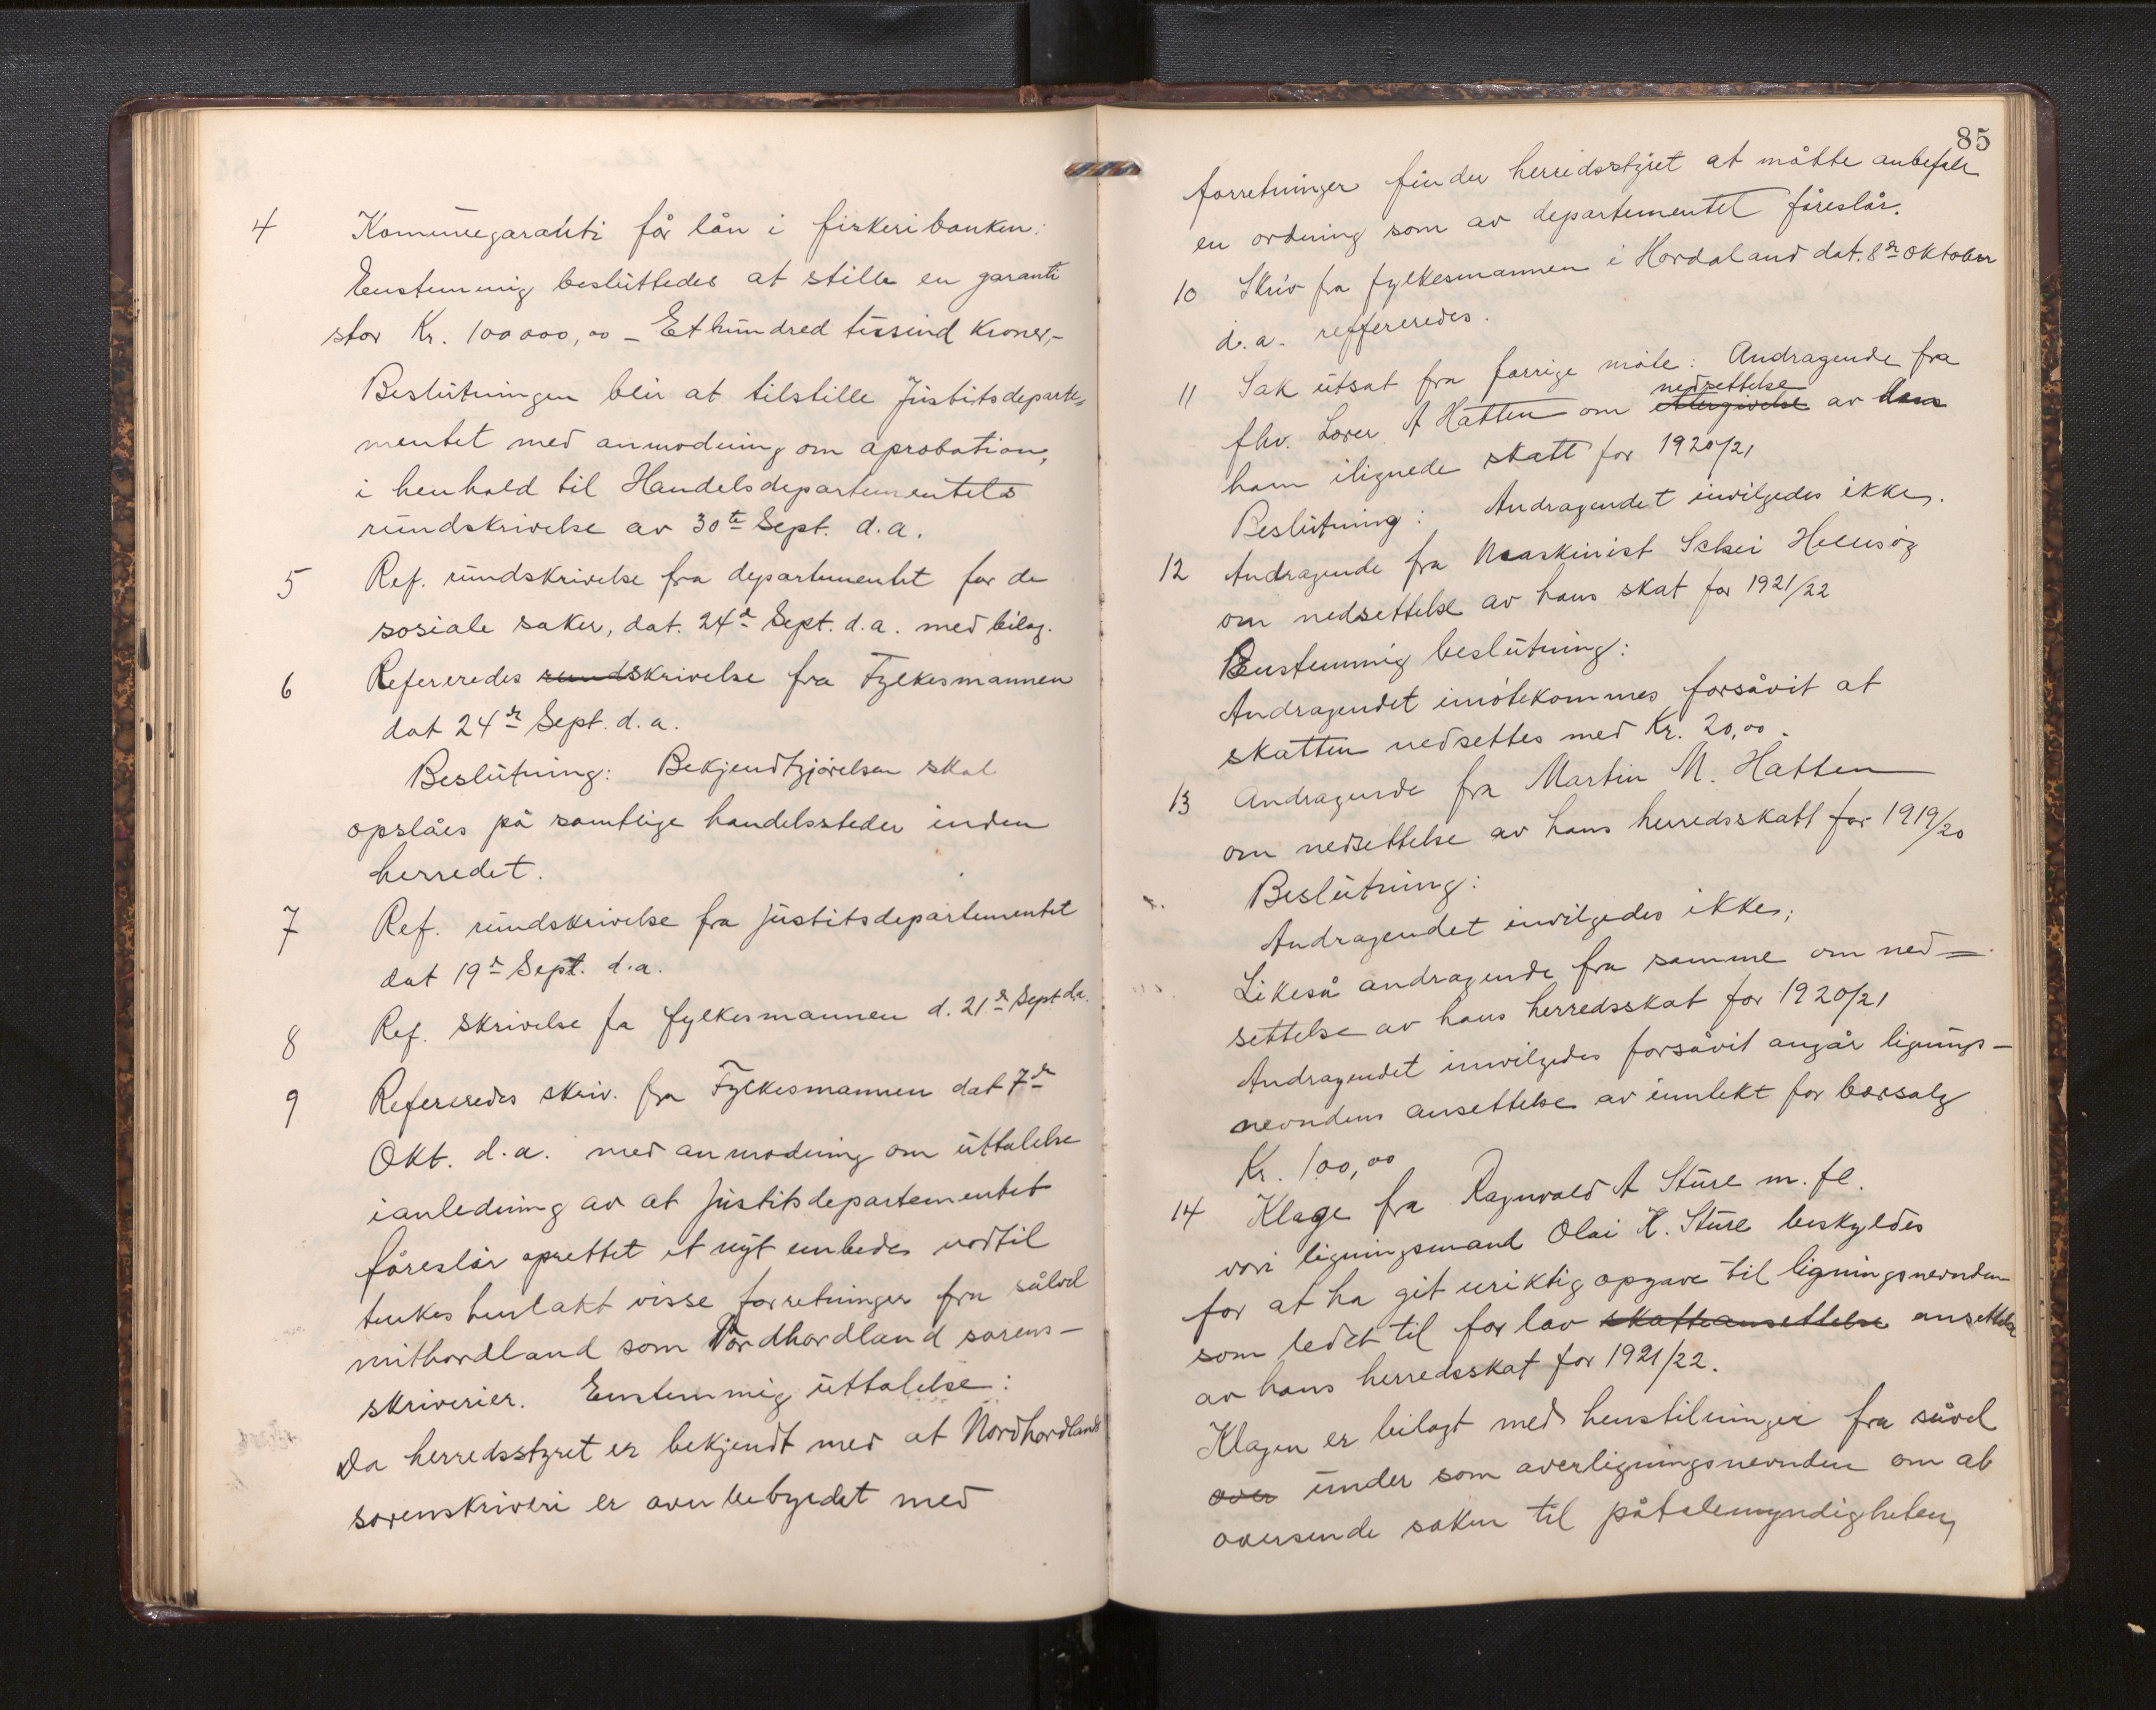 4 Kommunegaranti får lån i fiskeribanken:
Eenstemmig besluttedes at stille en garanti
stor Kr. 100000,00 - Ethundred tusind Kroner,-
Beslutningen blir at tilstille Justitsdeparte-
mentet med anmodning om aprobation,
i henhold til Handelsdepartementets
rundskrivelse av 30te Sept. d.a.
5 Ref. rundskrivelse fra departementet for de
sosiale saker, dat. 24de Sept. d.a. med bilag.
6 Refereredes rundskrivelse fra Fylkesmannen
dat 24de Sept. d.a.
Beslutning: Bekjendtgjørelsen skal
opslåes på samtlige handelssteder inden
herredet.
7 Ref. rundskrivelse fra Justitsdepartementet
dat 19de Sept. d.a.
8 Ref. skrivelse fa fylkesmannen d. 21de Sept d.a.
9 Refereredes skriv. fra Fylkesmannen dat 7de
Okt. d.a. med anmodning om uttalelse
ianledning av at Justitsdepartementet
føreslår oprettet et nyt embede vortil
tenkes henlakt visse forretninger fra såvel
mithordland som Nordhordland sorens-
skriverier. Enstemmig uttalelse:
Da herredsstyret er bekjendt med at Nordhordland
sorenskriveri er overbebyrdet med
85
forretninger finder herredsstyret at måtte anbefale
en ordning som av departementet føreslår.
10 Skriv fra fylkesmannen i Hordaland dat. 8de Oktober
d.a. reffereredes.
11 Sak utsat fra forrige møte: Andragende fra
nedsettelse
fhv. Lærer A Hatten om ettergivelse av den
ham ilignede skatt for 1920/21
Beslutning: Andragendet invilgedes ikke,
12 Andragende fra Maskinist Schei Hellisøy
om nedsettelse av hans skat for 1921/22
Eenstemmig beslutning:
Andragendet imøtekommes forsåvit at
skatten nedsettes med Kr. 20,00.
13 Andragende fra Martin M. Hatten
om nedsettelse av hans herredsskatt for 1919/20
Beslutning:
Andragendet invilgedes ikke;
Likeså andragende fra samme om ned=
settelse av hans herredsskat for 1920/21
Andragendet innvilgedes forsåvit angår lignings-
nevndens ansettelse av inntekt for bærsalg
Kr. 100,00
14 Klage fra Ragnvald A Sture m. fl.
vori ligningsmand Olai K. Sture beskyldes
for at ha git uriktig opgave til ligningsnevnden
som ledet til for lav skatteansettelse ansettelse
av hans herredsskat for 1921/22.
Klagen er bilagt med henstilninger fra såvel
over under som overligningsnevnden om at
oversende saken til påtalemyndigheten,